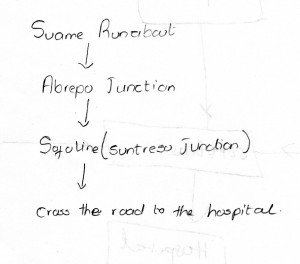 Suame Runabout
Abrepo Junction
Sofoline (Suntreso junction)
Cross the road to the hospital.